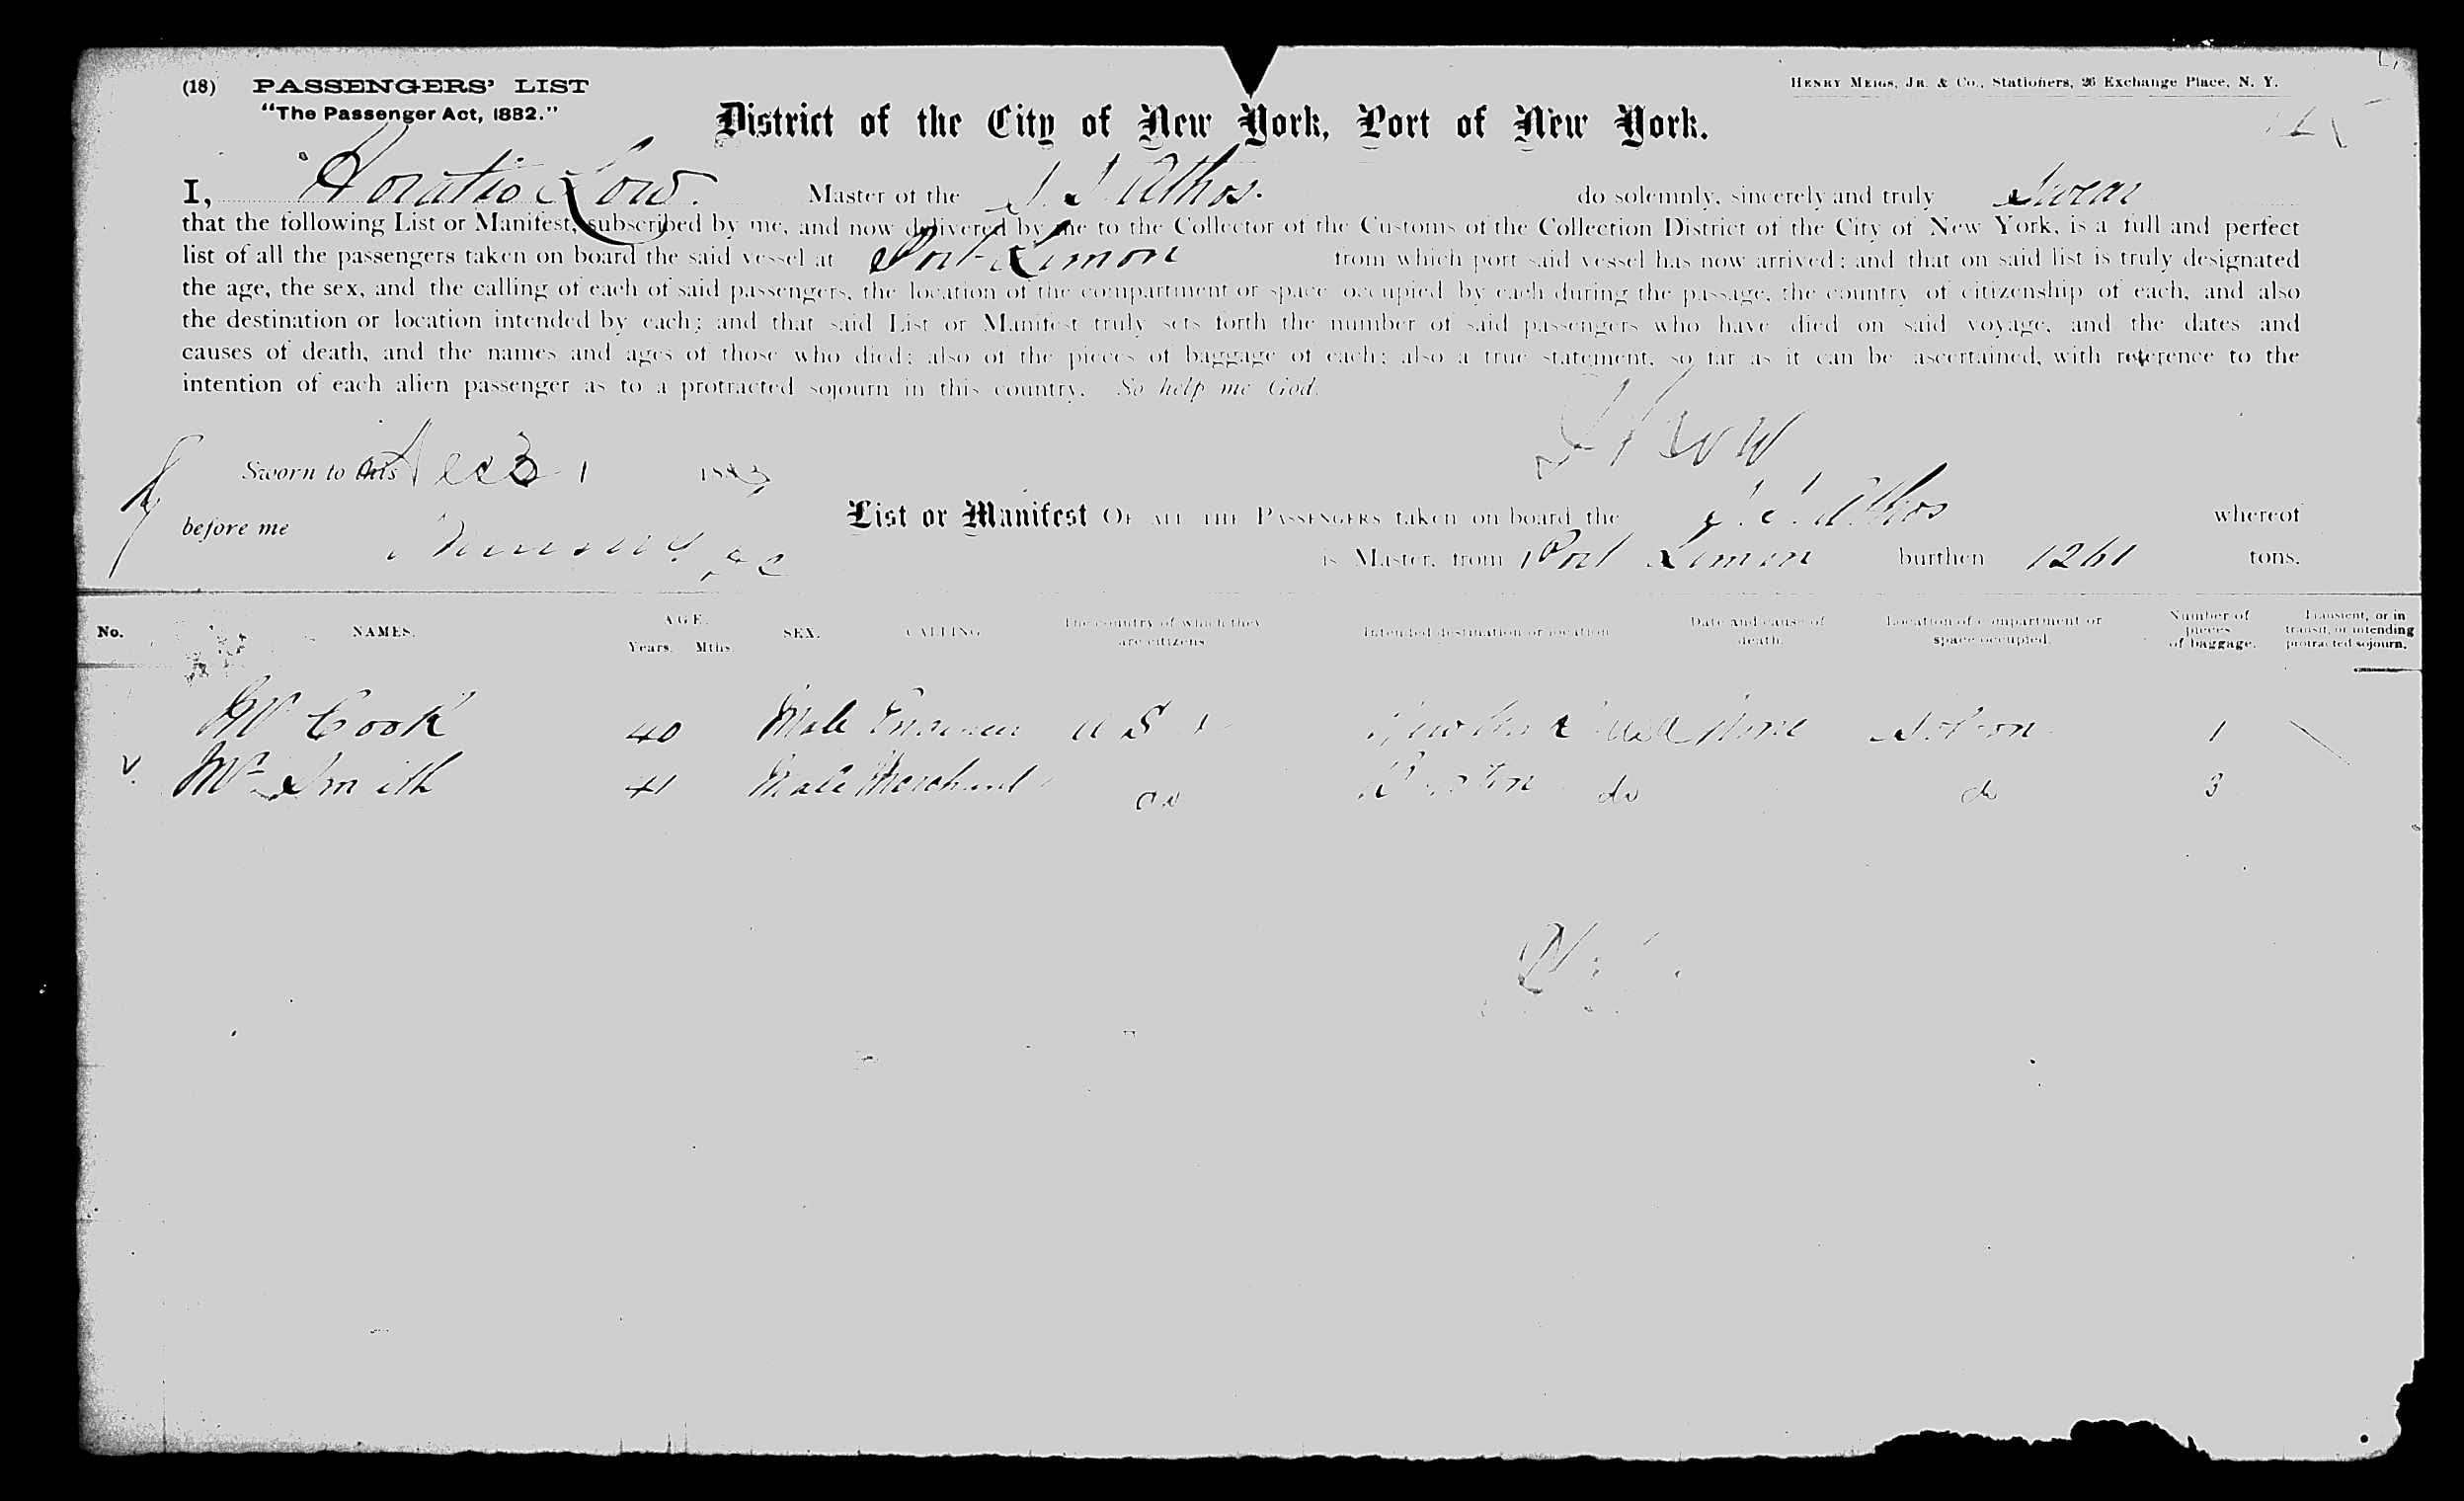 (18) PASSENGERS' LIST
"The Passenger Act, 1882."
HENRY MEIGS, JR. & Co., Stationers, 26 Exchange Place, N. Y.
District of the City of New York, Port of New York.
I, Horatio Low. Master of the S. S. Athos. do solemnly, sincerely and truly Swear
that the following List or Manifest, subscribed by me, and now delivered by me to the Collector of the Customs of the Collection District of the City of New York, is a full and perfect
list of all the passengers taken on board the said vessel at Port Limon from which port said vessel has now arrived; and that on said list is truly designated
the age, the sex, and the calling of each of said passengers, the location of the compartment or space occupied by each during the passage, the country of citizenship of each, and also
the destination or location intended by each; and that said List or Manifest truly sets forth the number of said passengers who have died on said voyage, and the dates and
causes of death, and the names and ages of those who died; also of the pieces of baggage of each; also a true statement, so far as it can be ascertained, with reference to the
intention of each alien passenger as to a protracted sojourn in this country. So help me God.
H Low
Sworn to this Dec 31 188
before me
List or Manifest OF ALL THE PASSENGERS taken on board the S. S. Athos whereof
is Master, from Port Limon burthen 1261 tons.
No. NAMES. AGE. Years. Mths. SEX. CALLING The country of which they are citizens Intended destination or location Date and cause of death. Location of compartment or space occupied. Number of pieces of baggage. Transient, or in transit, or intending protracted sojourn.
Mr Cook 40 Male U S New York Saloon 1
Mr Smith 41 Male Merchant do Boston do do 3